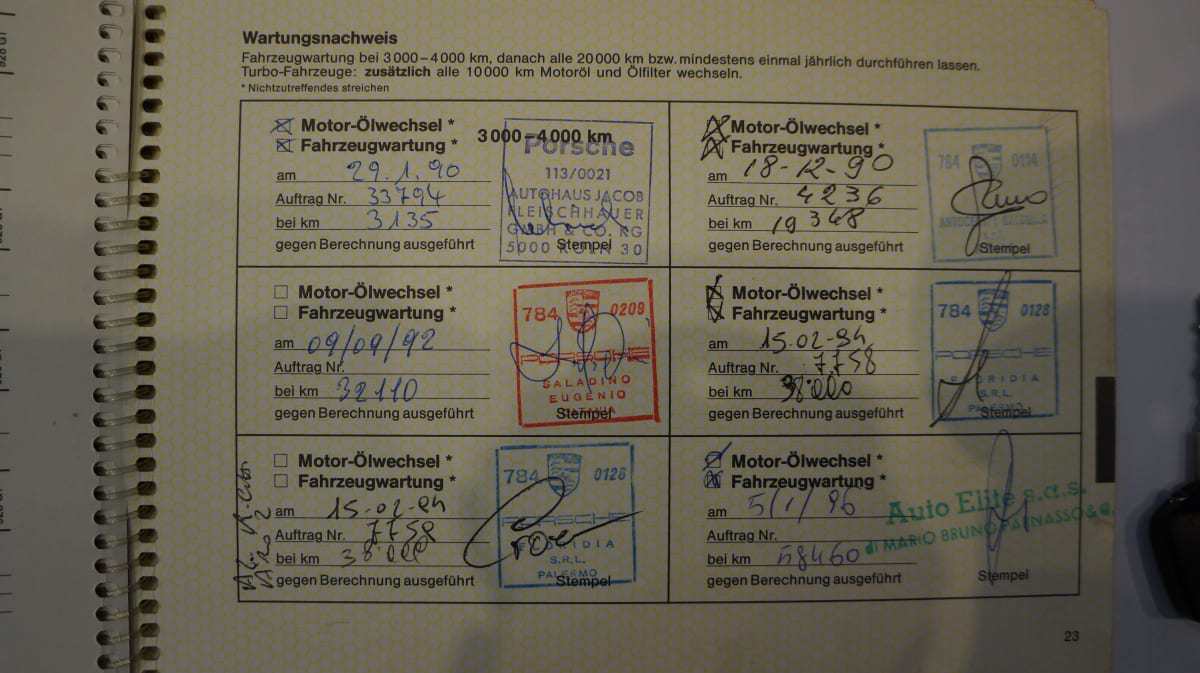 Wartungsnachweis
Fahrzeugwartung bei 3 000 – 4 000 km, danach alle 20 000 km bzw. mindestens einmal jährlich durchführen lassen.
Turbo-Fahrzeuge: zusätzlich alle 10 000 km Motoröl und Ölfilter wechseln.
* Nichtzutreffendes streichen
Motor-Ölwechsel *
Fahrzeugwartung *
3 000 – 4 000 km
am 29.1.90
Auftrag Nr. 33794
bei km 3135
gegen Berechnung ausgeführt
Porsche
113/0021
AUTOHAUS JACOB
FLEISCHHAUER
GMBH & CO. KG
5000 KÖLN 30
Stempel
Motor-Ölwechsel *
Fahrzeugwartung *
am 18-12-90
Auftrag Nr. 4236
bei km 19348
gegen Berechnung ausgeführt
784 0114
Stempel
Motor-Ölwechsel *
Fahrzeugwartung *
am 09/09/92
Auftrag Nr.
bei km 32110
gegen Berechnung ausgeführt
784 0209
PORSCHE
SALADINO
EUGENIO
CATANIA
Stempel
Motor-Ölwechsel *
Fahrzeugwartung *
am 15-02-94
Auftrag Nr. 7758
bei km 38000
gegen Berechnung ausgeführt
784 0128
PORSCHE
FLORIDIA
S.R.L.
PALERMO
Stempel
Motor-Ölwechsel *
Fahrzeugwartung *
am 15-02-94
Auftrag Nr. 7758
bei km 38000
gegen Berechnung ausgeführt
784 0128
PORSCHE
FLORIDIA
S.R.L.
PALERMO
Stempel
Motor-Ölwechsel *
Fahrzeugwartung *
am 5/1/96
Auftrag Nr.
bei km 58460
gegen Berechnung ausgeführt
Auto Elite s.a.s.
di MARIO BRUNO PARNASSO & C.
Stempel
23